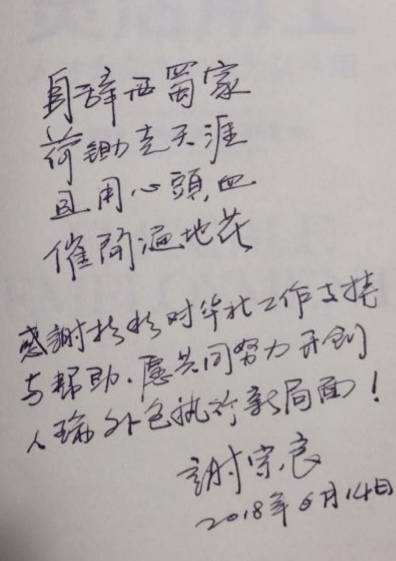 自辞西蜀家
荷鋤走天涯
且用心頭血
催開遍地花
感謝对华社工作支持
与帮助.愿共同努力开创
人瑞外包执行新局面!
謝宗良
2018年6月14日